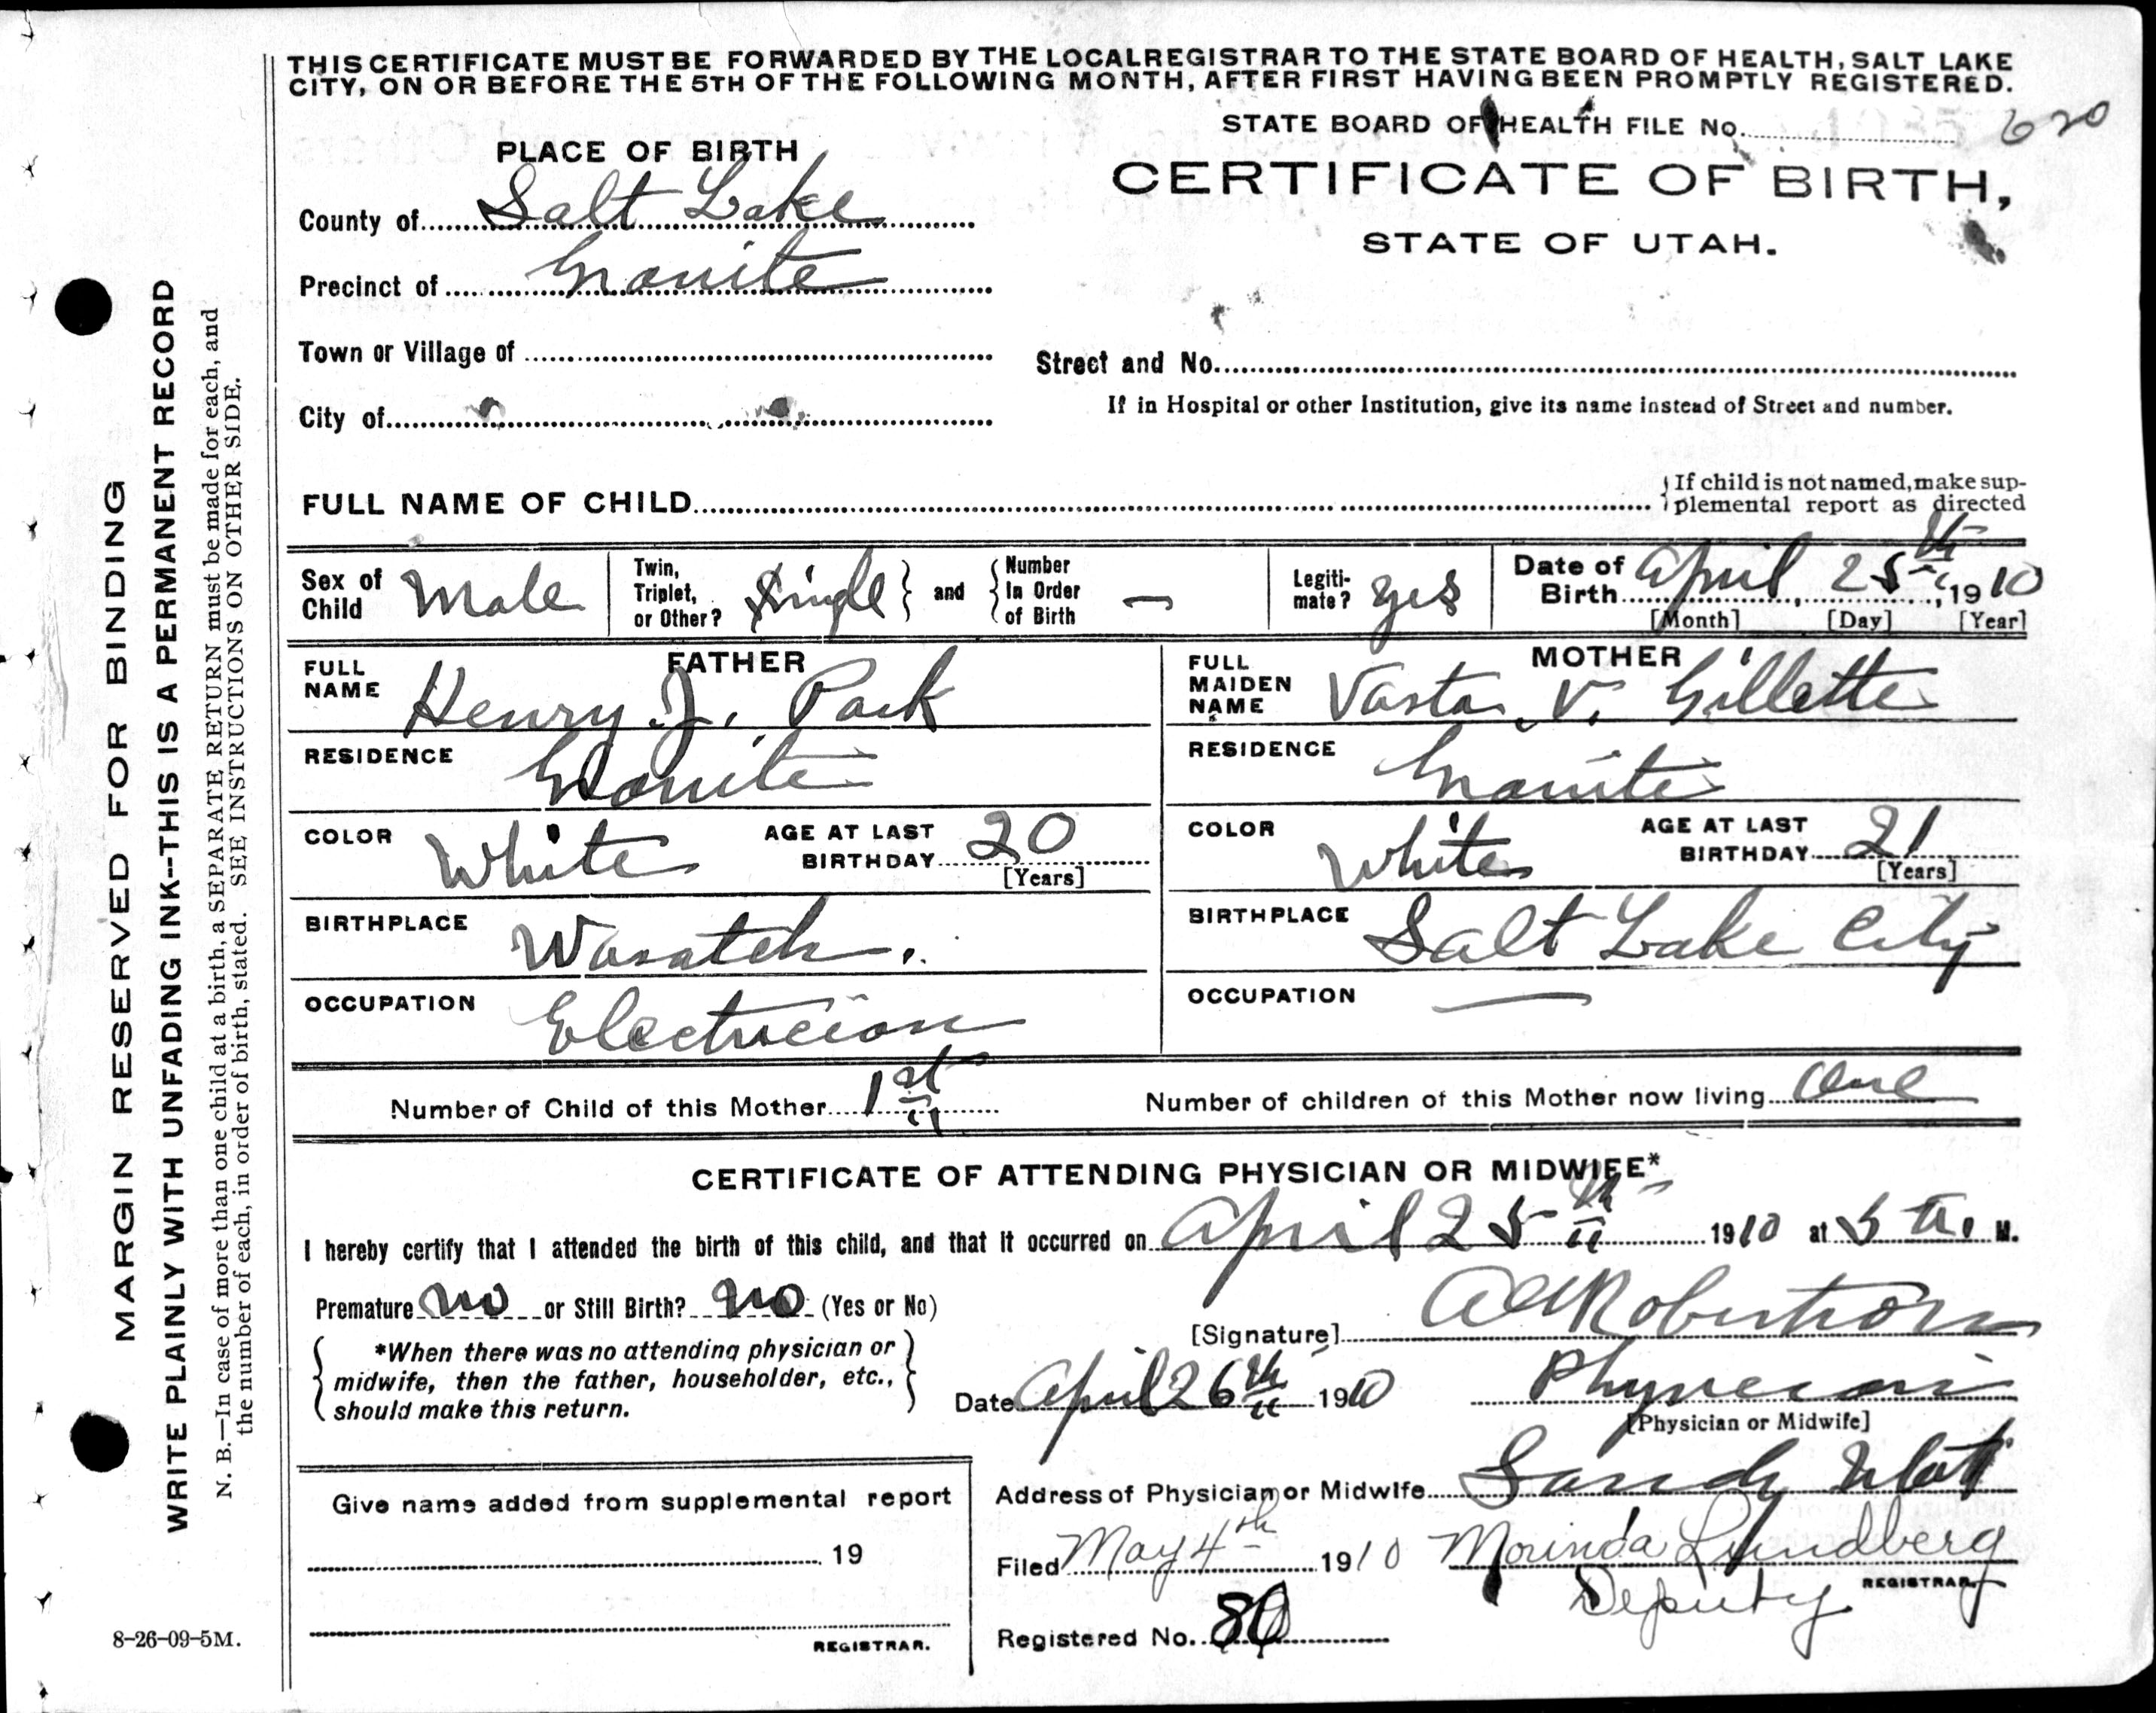 THIS CERTIFICATE MUST BE FORWARDED BY THE LOCAL REGISTRAR TO THE STATE BOARD OF HEALTH, SALT LAKE
CITY, ON OR BEFORE THE 5TH OF THE FOLLOWING MONTH, AFTER FIRST HAVING BEEN PROMPTLY REGISTERED.
STATE BOARD OF HEALTH FILE No. 620
PLACE OF BIRTH
CERTIFICATE OF BIRTH,
STATE OF UTAH.
County of Salt Lake
Precinct of Granite
Town or Village of
Street and No.
City of
If in Hospital or other Institution, give its name instead of Street and number.
FULL NAME OF CHILD
If child is not named, make sup-
plemental report as directed
Sex of Child Male
Twin, Triplet, or Other? Single and Number In Order of Birth —
Legiti-mate? Yes
Date of Birth April 25th, 1910
[Month] [Day] [Year]
FATHER
FULL NAME Henry J. Park
RESIDENCE Granite
COLOR White AGE AT LAST BIRTHDAY 20
[Years]
BIRTHPLACE Wasatch.
OCCUPATION Electrician
MOTHER
FULL MAIDEN NAME Vasta V. Gillette
RESIDENCE Granite
COLOR White AGE AT LAST BIRTHDAY 21
[Years]
BIRTHPLACE Salt Lake City
OCCUPATION —
Number of Child of this Mother 1st
Number of children of this Mother now living One
CERTIFICATE OF ATTENDING PHYSICIAN OR MIDWIFE*
I hereby certify that I attended the birth of this child, and that it occurred on April 25th 1910 at 5 A. M.
Premature No or Still Birth? No (Yes or No)
[Signature] Robertson
*When there was no attending physician or
midwife, then the father, householder, etc.,
should make this return.
Date April 26th 1910
Physician
[Physician or Midwife]
Address of Physician or Midwife Sandy Utah
Give name added from supplemental report
19
REGISTRAR.
Filed May 4th 1910 Morinda Lundberg
REGISTRAR.
Deputy
Registered No. 80
MARGIN RESERVED FOR BINDING
WRITE PLAINLY WITH UNFADING INK--THIS IS A PERMANENT RECORD
N. B.—In case of more than one child at a birth, a SEPARATE RETURN must be made for each, and
the number of each, in order of birth, stated. SEE INSTRUCTIONS ON OTHER SIDE.
8-26-09-5M.